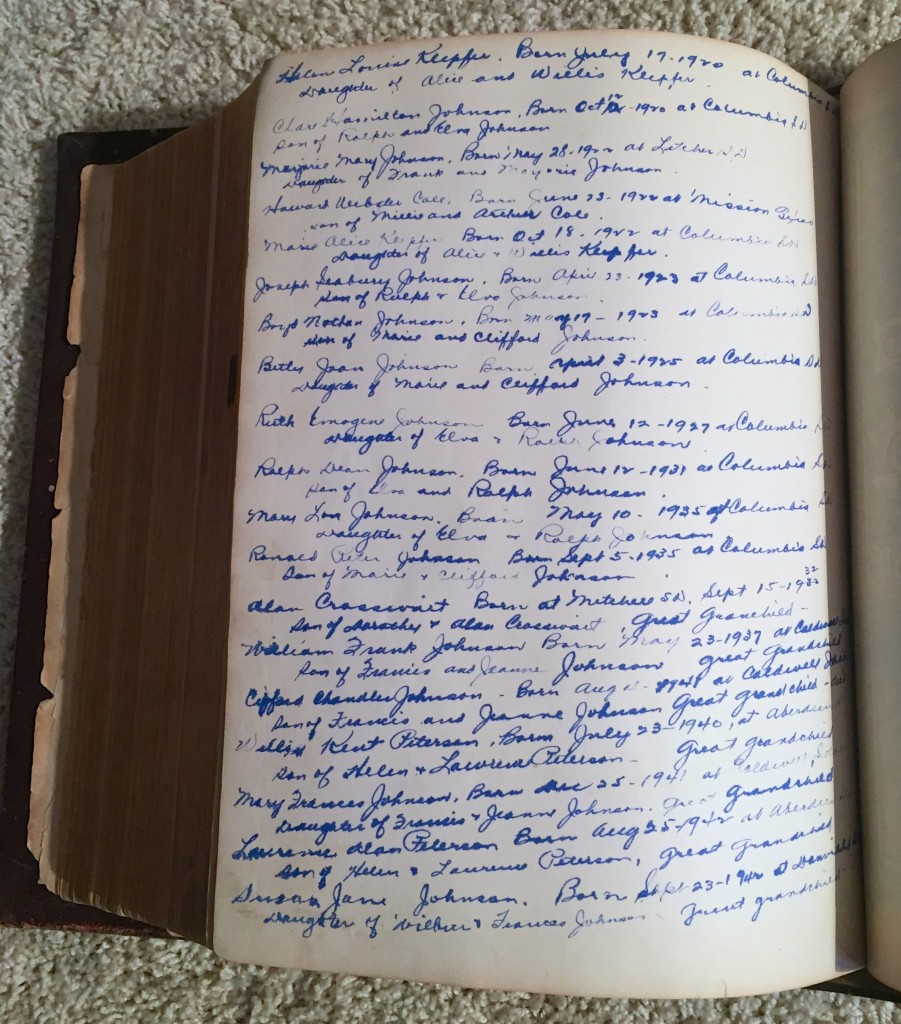 Helen Louise Keipfer. Born July 17-1920 at Columbia
Daughter of Alice and Willis Keipfer
Clare Hamilton Johnson, Born Oct 12-1920 at Columbia S.D
Son of Ralph and Elva Johnson
Marjorie Mary Johnson, Born May 28-1922 at Letcher S.D
Daughter of Frank and Marjorie Johnson
Howard Webster Cole, Born June 23-1922 at Mission
son of Millie and Archer Cole.
Marie Alice Keipfer Born Oct 18, -1922 at Columbia S.D
Daughter of Alice & Willis Keipfer.
Joseph Seabury Johnson, Born April 23-1923 at Columbia
son of Ralph & Elva Johnson.
Boyd Nathan Johnson, Born May 17-1923 at Columbia S.D
son of Marie and Clifford Johnson.
Betty Joan Johnson Born April 3-1925 at Columbia S.D
Daughter of Marie and Clifford Johnson.
Ruth Emogene Johnson Born June 12-1927 at Columbia
Daughter of Elva & Johnson
Ralph Dean Johnson, Born June 12-1931 at Columbia
son of Elva and Ralph Johnson.
Mary Lou Johnson, May 10-1935 at Columbia
Daughter of Elva & Ralph Johnson
Ronald Peter Johnson Born Sept 5-1935 at Columbia
Son of Marie & Clifford Johnson
Alan Crosswait Born at Mitchell S.D, Sept 15-1932
Son of Dorothy & Alan Crosswait, Great Granchild-
William Frank Johnson Born May 23-1937 at
Son of Francis and Jeanne Johnson Great Grandchild
Clifford Chandler Johnson - Born Aug at Caldwell
Son of Francis and Jeanne Johnson Great Grandchild-
Kent Peterson, Born July 23-1940, at Aberdeen
son of Helen & Lawrence Peterson- Great Grandchild
Mary Frances Johnson, Born 25-1941 at Caldwell,
Daughter of Francis & Jeanne Johnson. Great Grandchild
Laurence Alan Peterson Born Aug 25-1942 at Aberdeen
Son of Helen & Laurence Peterson, Great Grandchild
Susan Jane Johnson. Born Sept-23-1942 at
Daughter of Wilbur & Frances Johnson Great grandchild-